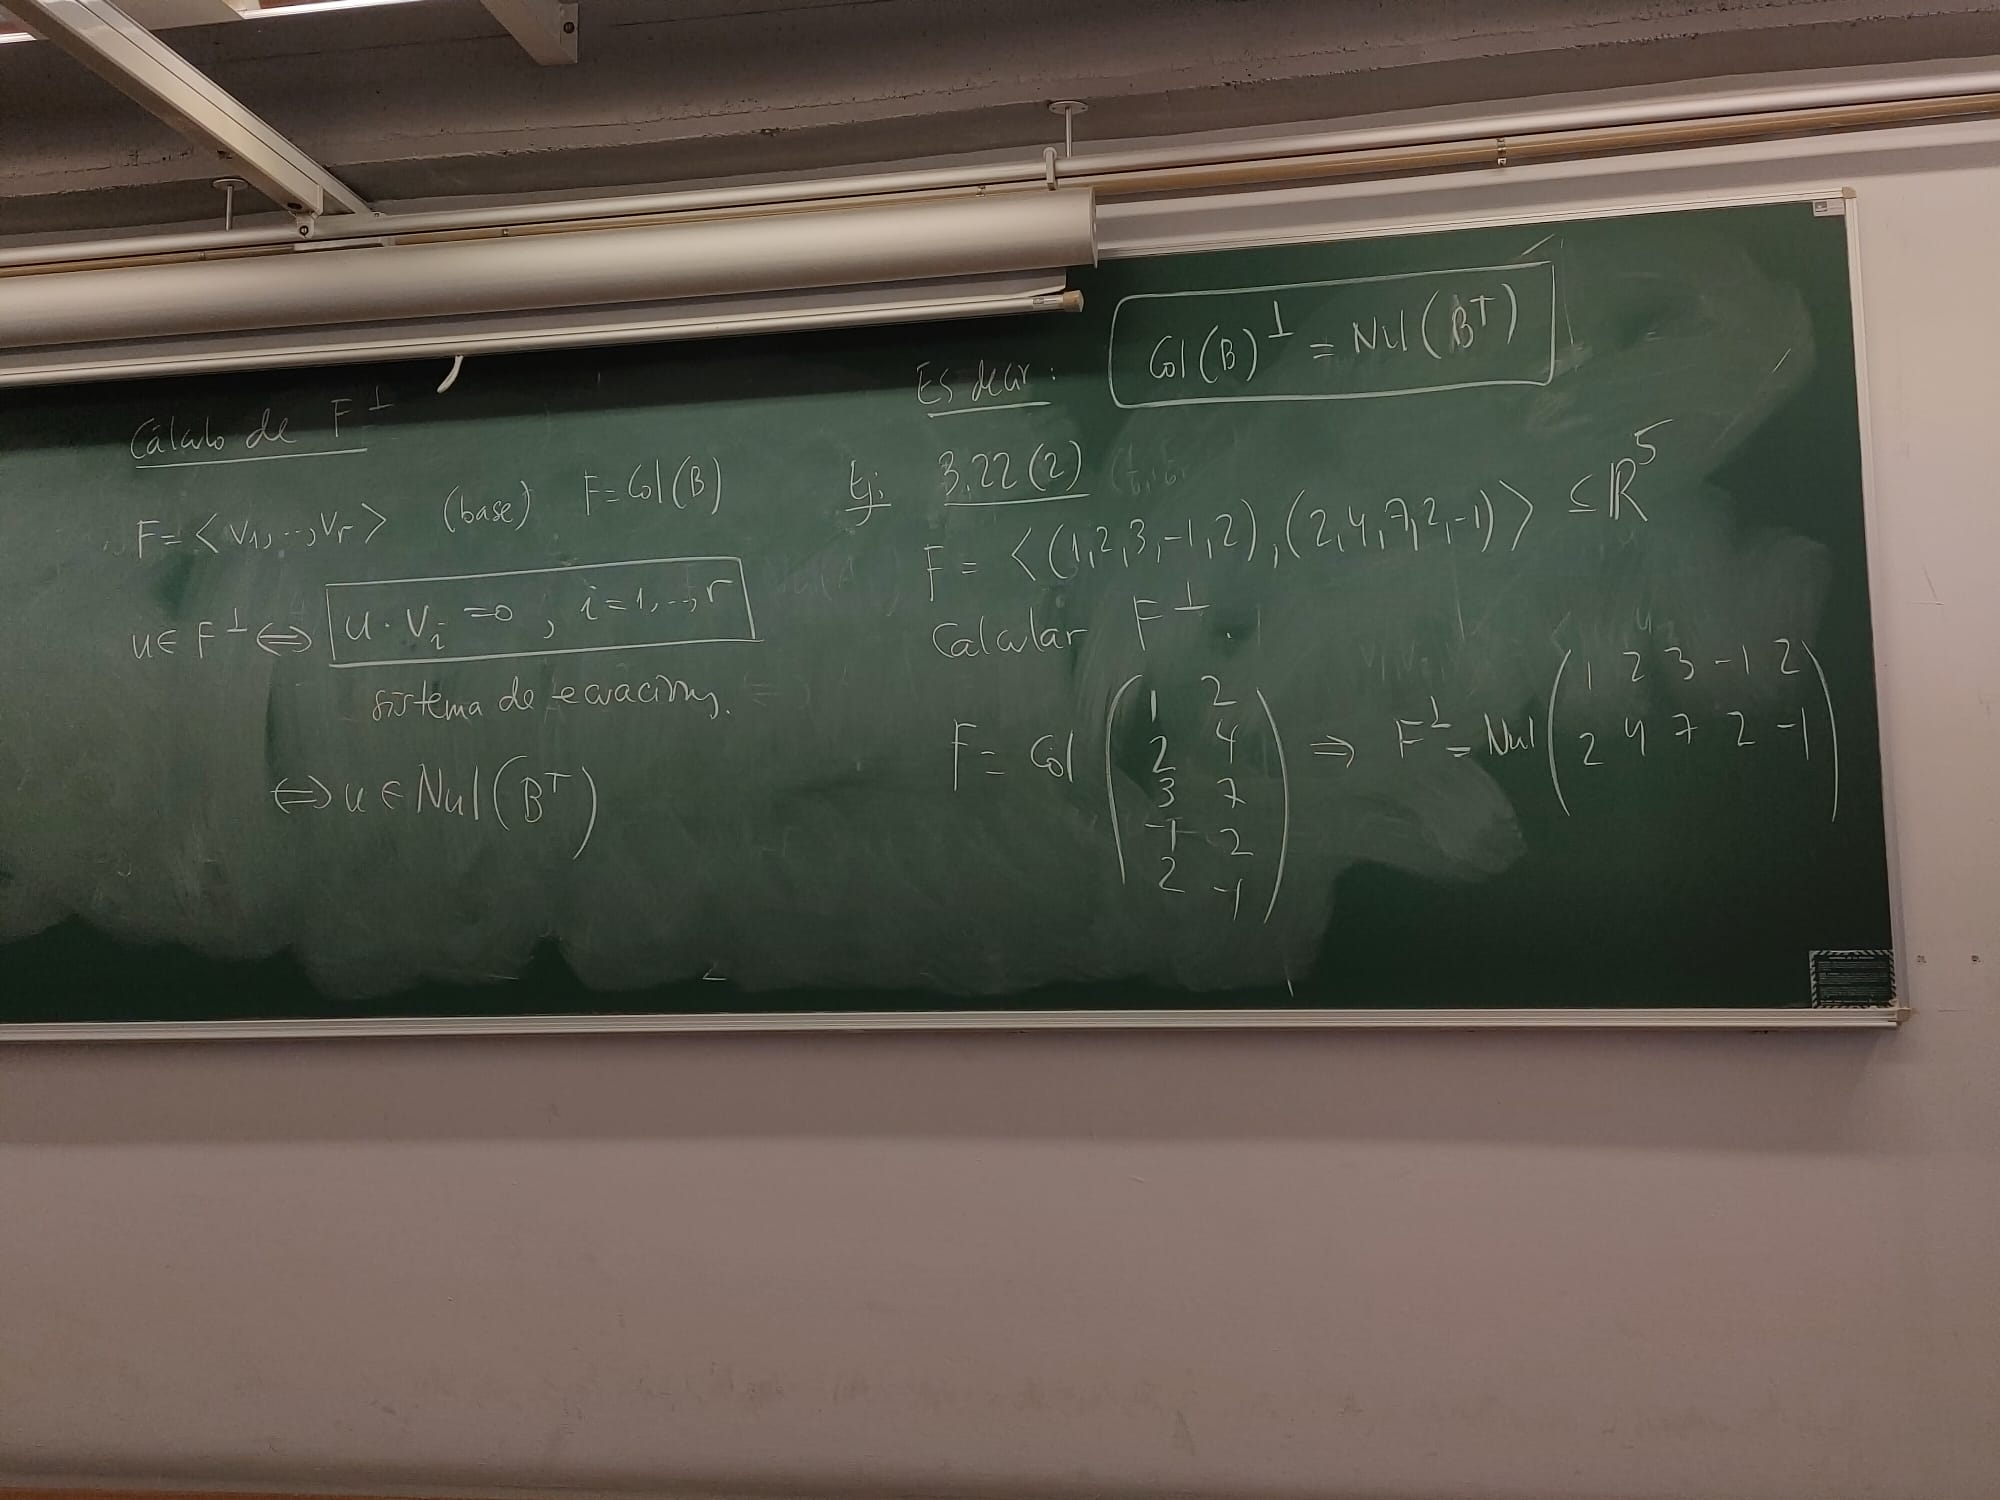 Cálculo de F⊥
F = <v1, .., vr> (base) F = Col(B)
u ∈ F⊥ ⇔ u · vi = 0 , i = 1, .., r
sistema de ecuaciones.
⇔ u ∈ Nul(B^T)
Es decir : Col(B)⊥ = Nul(B^T)
Ej: 3.22(2)
F = <(1,2,3,-1,2), (2,4,7,2,-1)> ≤ ℝ^5
Calcular F⊥.
F = Col ( 1 2
2 4
3 7
-1 2
2 -1 ) ⇒ F⊥ = Nul ( 1 2 3 -1 2
2 4 7 2 -1 )